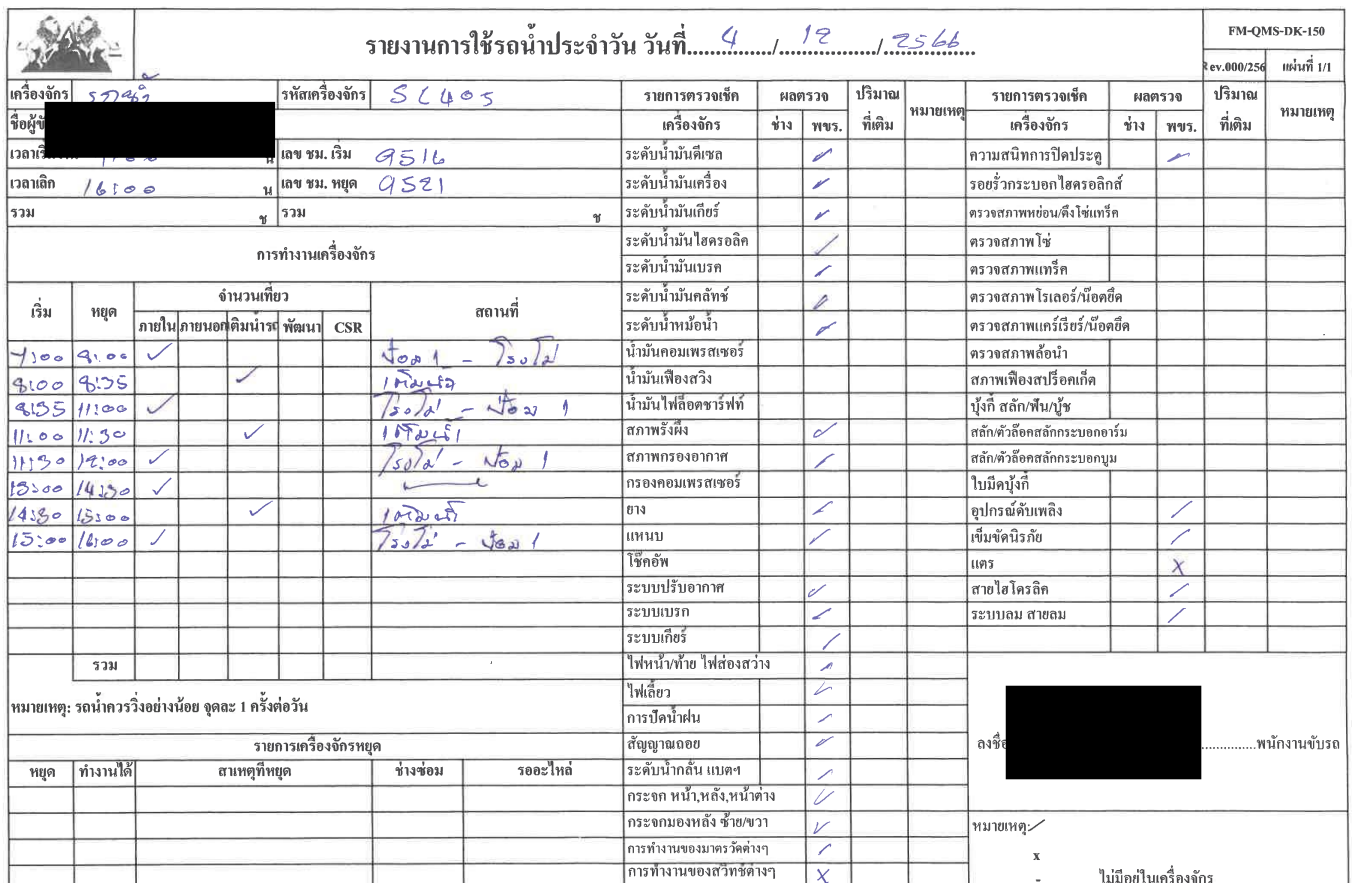 รายงานการใช้รถน้ำประจำวัน วันที่ 4 / 12 / 2566
FM-QMS-DK-150
Rev.000/256 แผ่นที่ 1/1
เครื่องจักร รถน้ำ รหัสเครื่องจักร SC405
ชื่อผู้ขั
เวลาเริ่ น เลข ชม. เริ่ม 9516
เวลาเลิก 16:00 น เลข ชม. หยุด 9521
รวม ช รวม ช
การทำงานเครื่องจักร
เริ่ม หยุด จำนวนเที่ยว สถานที่
ภายใน ภายนอก เติมน้ำรถ พัฒนา CSR
7:00 8:00 ✓ ป้อม 1 - โรงโม่
8:00 8:35 ✓ เติมน้ำ
8:35 11:00 ✓ โรงโม่ - ป้อม 1
11:00 11:30 ✓ เติมน้ำ
11:30 12:00 ✓ โรงโม่ - ป้อม 1
13:00 14:30 ✓
14:30 15:00 ✓ เติมน้ำ
15:00 16:00 ✓ โรงโม่ - ป้อม 1
รวม
หมายเหตุ: รถน้ำควรวิ่งอย่างน้อย จุดละ 1 ครั้งต่อวัน
รายการเครื่องจักรหยุด
หยุด ทำงานได้ สาเหตุที่หยุด ช่างซ่อม รออะไหล่
รายการตรวจเช็ค ผลตรวจ ปริมาณ หมายเหตุ
เครื่องจักร ช่าง พขร. ที่เติม
ระดับน้ำมันดีเซล ✓
ระดับน้ำมันเครื่อง ✓
ระดับน้ำมันเกียร์ ✓
ระดับน้ำมันไฮดรอลิค ✓
ระดับน้ำมันเบรค ✓
ระดับน้ำมันคลัทช์ ✓
ระดับน้ำหม้อน้ำ ✓
น้ำมันคอมเพรสเซอร์
น้ำมันเฟืองสวิง
น้ำมันไฟล็อตชาร์ฟท์
สภาพรังผึ้ง ✓
สภาพกรองอากาศ ✓
กรองคอมเพรสเซอร์
ยาง ✓
แหนบ ✓
โช๊คอัพ
ระบบปรับอากาศ ✓
ระบบเบรก ✓
ระบบเกียร์ ✓
ไฟหน้า/ท้าย ไฟส่องสว่าง ✓
ไฟเลี้ยว ✓
การปัดน้ำฝน ✓
สัญญาณถอย ✓
ระดับน้ำกลั่น แบตฯ ✓
กระจก หน้า,หลัง,หน้าต่าง ✓
กระจกมองหลัง ซ้าย/ขวา ✓
การทำงานของมาตรวัดต่างๆ ✓
การทำงานของสวิทช์ต่างๆ X
รายการตรวจเช็ค ผลตรวจ ปริมาณ หมายเหตุ
เครื่องจักร ช่าง พขร. ที่เติม
ความสนิทการปิดประตู ✓
รอยรั่วกระบอกไฮดรอลิกส์
ตรวจสภาพหย่อน/ตึงโซ่แทร็ค
ตรวจสภาพโซ่
ตรวจสภาพแทร็ค
ตรวจสภาพโรเลอร์/น๊อตยึด
ตรวจสภาพแคร์เรียร์/น๊อตยึด
ตรวจสภาพล้อนำ
สภาพเฟืองสปร็อคเก็ต
บุ้งกี๋ สลัก/ฟัน/บู้ช
สลัก/ตัวล๊อคสลักกระบอกอาร์ม
สลัก/ตัวล๊อคสลักกระบอกบูม
ใบมีดบุ้งกี๋
อุปกรณ์ดับเพลิง ✓
เข็มขัดนิรภัย ✓
แตร X
สายไฮโดรลิค ✓
ระบบลม สายลม ✓
ลงชื่อ พนักงานขับรถ
หมายเหตุ: ✓
x
- ไม่มีอยู่ในเครื่องจักร